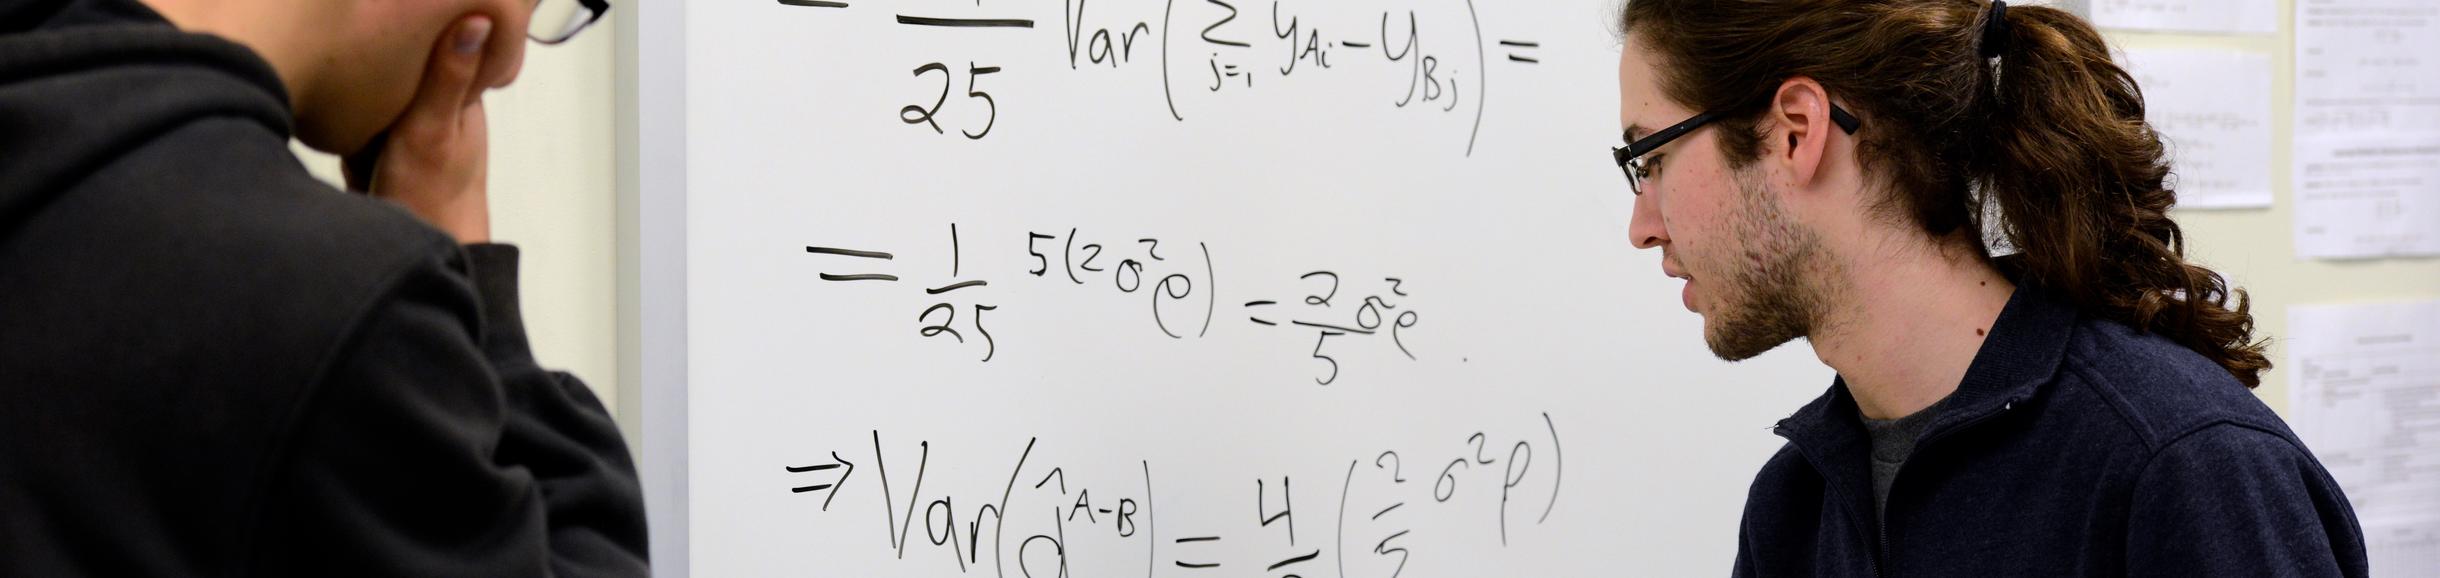 = 1/25 Var(∑ j=1 y_Ai − y_Bj) =
= 1/25 5(2σ²ρ) = 2/5 σ²ρ.
⇒ Var(d̂^A-B) = 4/ (2/5 σ²ρ)